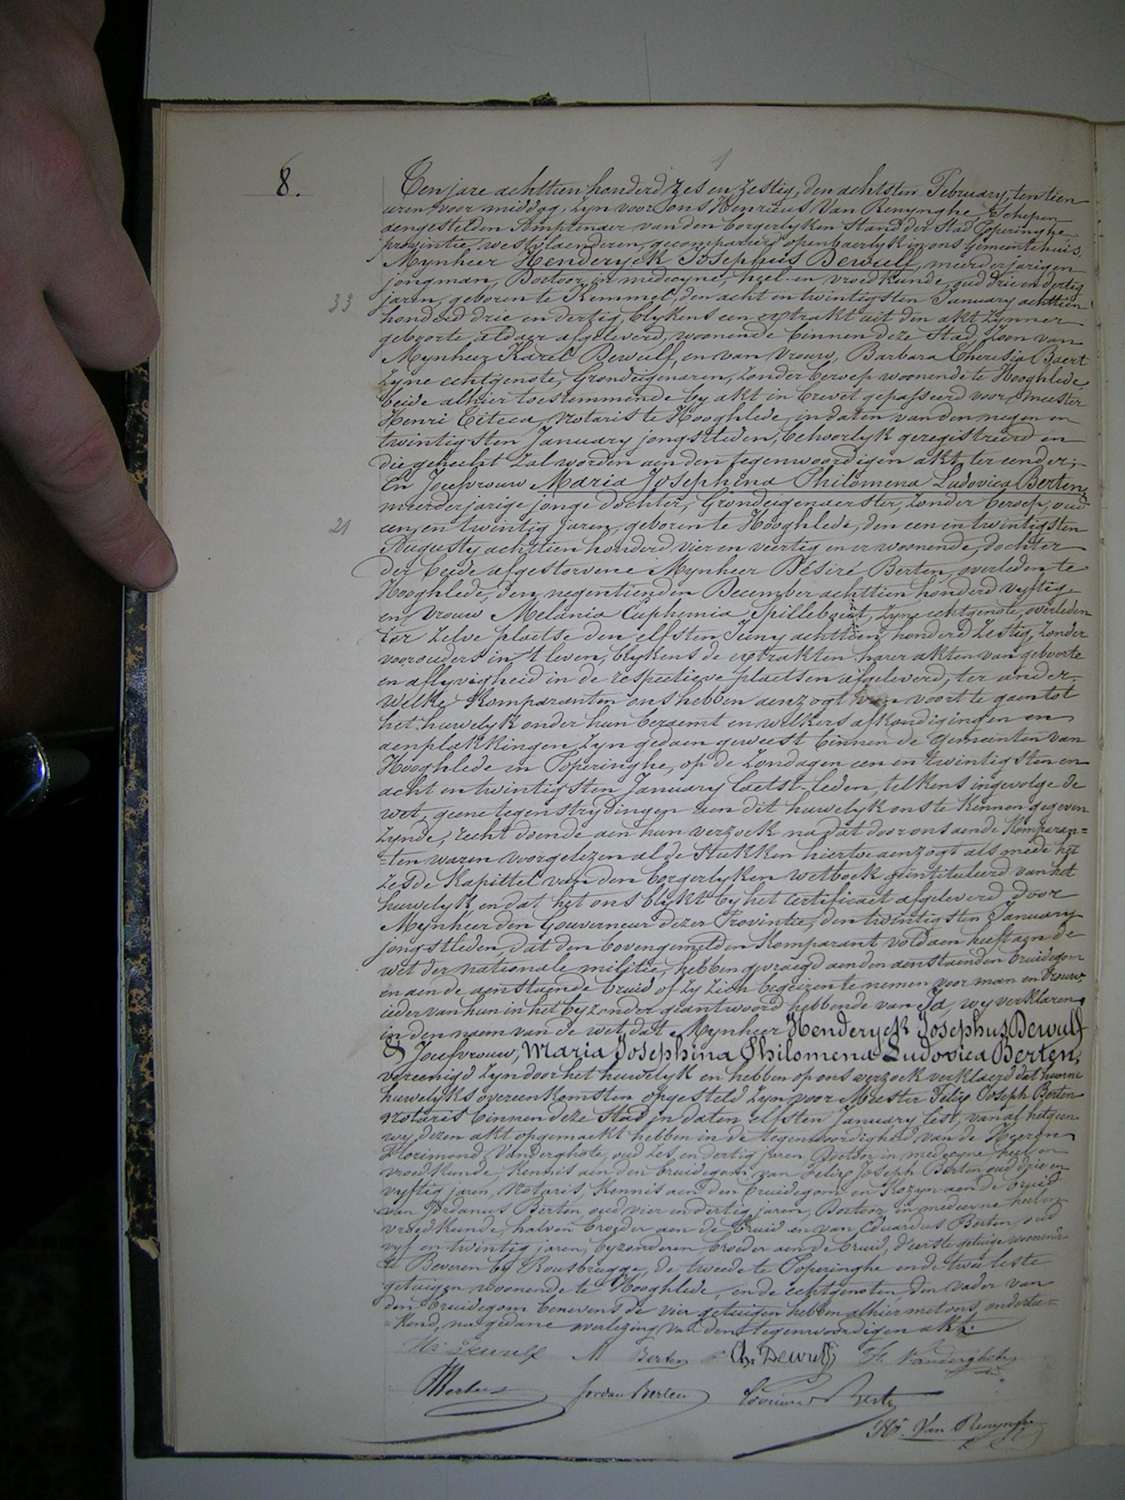 8.
Ten jare achttien honderd zes en zestig, den achtsten February, ten tien
uren voor middag, zyn voor ons Henricus Van Renynghe, Schepen
aengestelden Amptenaer van den borgerlyken stand der Stad Poperinghe
provintie westvlaenderen, gecompareerd openbaerlyk in ons gemeentehuis,
Mynheer Henderyck Josephus Dewulf, meerderjarigen
jongman, Doctoor in medecyne, heel- en vroedkunde, oud drie en dertig
33
jaren, geboren te Kemmel, den acht en twintigsten January achttien
honderd drie en dertig, blykens een extrakt uit den akt zynner
geboorte aldaer afgeleverd, woonende binnen deze Stad, zoon van
Mynheer Karel Dewulf, en van Vrouw, Barbara Theresia Baert
zyne echtgenote, Grondeigenaren, zonder beroep woonende te Hooghlede
beide alhier toestemmende by akt in brevet gepasseerd voor Meester
Henri Notaris te Hooghlede, in daten van den negen en
twintigsten January jongstleden, behoorlyk geregistreerd en
die gehecht zal worden aen den tegenwoordigen akt, ter eender;
En Joufvrouw Maria Josephina Philomena Ludovica Berten,
meerderjarige jonge dochter, Grondeigenaerster, zonder beroep, oud
21
een en twintig jaren, geboren te Hooghlede, den een en twintigsten
Augusty achttien honderd vier en veertig en er woonende, dochter
der beide afgestorvene Mynheer Désiré Berten, overleden te
Hooghlede, den negentienden December achttien honderd vyftig
en Vrouw Melania Euphemia Spillebeut, zyne echtgenote, overleden
ter zelve plaetse den elfsten Juny achttien honderd zestig, zonder
voorouders in 't leven, blykens de extrakten harer akten van geboorte
en aflyvigheid in de respectieve plaetsen afgeleverd, ter ander.
Welke Komparanten ons hebben aenzogt van voort te gaen tot
het huwelyk onder hun beraemt en welkers afkondigingen en
aenplakkingen zyn gedaen geweest binnen de gemeenten van
Hooghlede en Poperinghe, op de zondagen een en twintigsten en
acht en twintigsten January laetst leden, telkens ingevolge de
wet, geene tegenstrydingen aen dit huwelyk ons te kennen gegeven
zynde, recht doende aen hun verzoek na dat door ons aen de Komparan=
=ten waren voorgelezen al de stukken hiertoe aenzogt als mede het
zesde Kapittel van den borgerlyken wetboek geintituleerd van het
huwelyk en dat het ons blykt by het certificaet afgeleverd door
Mynheer den Gouverneur dezer Provintie, den twintigsten January
jongstleden, dat den bovengemelden Komparant voldaen heeft aen de
wet der nationale militie, hebben gevraegd aen den aenstaenden bruidegom
en aen de aenstaende bruid of zy zich begeizen te nemen voor man en vrouw,
ieder van hun in het byzonder geantwoord hebbende van Ja, wy verklaren
in den naem van de wet, dat Mynheer Henderyck Josephus Dewulf
& Joufvrouw, Maria Josephina Philomena Ludovica Berten,
vereenigd zyn door het huwelyk en hebben op ons verzoek verklaerd dat hunne
huwelyks overeenkomsten opgesteld zyn voor Meester Felix Joseph Berten
Notaris binnen deze Stad in daten elfsten January lest, van al hetgeen
wy dezen akt opgemaekt hebben in de tegenwoordigheid van de Heeren
Florimond Vanderghote, oud zes en dertig jaren Doctor in medecyne, heel en
vroedkunde, kennis aen den bruidegom, van Felix Joseph Berten oud drie en
vyftig jaren, Notaris, Kennis aen den bruidegom en Kozyn aen de bruid
van Jordanus Berten oud vier en dertig jaren, Doctoor in medecyne heel en
vroedkunde, halven broeder aen de bruid en van Eduardus Berten, oud
vyf en twintig jaren, byzonderen broeder aen de bruid, d'eerste getuige woonende
te Beveren by Rousbrugge, de tweede te Poperinghe en de twee leste
getuigen woonende te Hooghlede, en de echtgenoten, den vader van
den bruidegom benevens de vier getuigen hebben alhier met ons onderte=
=kend, na gedane voorlezing van den tegenwoordigen akt.
Hi Dewulf M Berten Ch. Dewulf Fl. Vanderghote
Berten Jordan Berten Edouard Berten
Hri. Van Renynghe